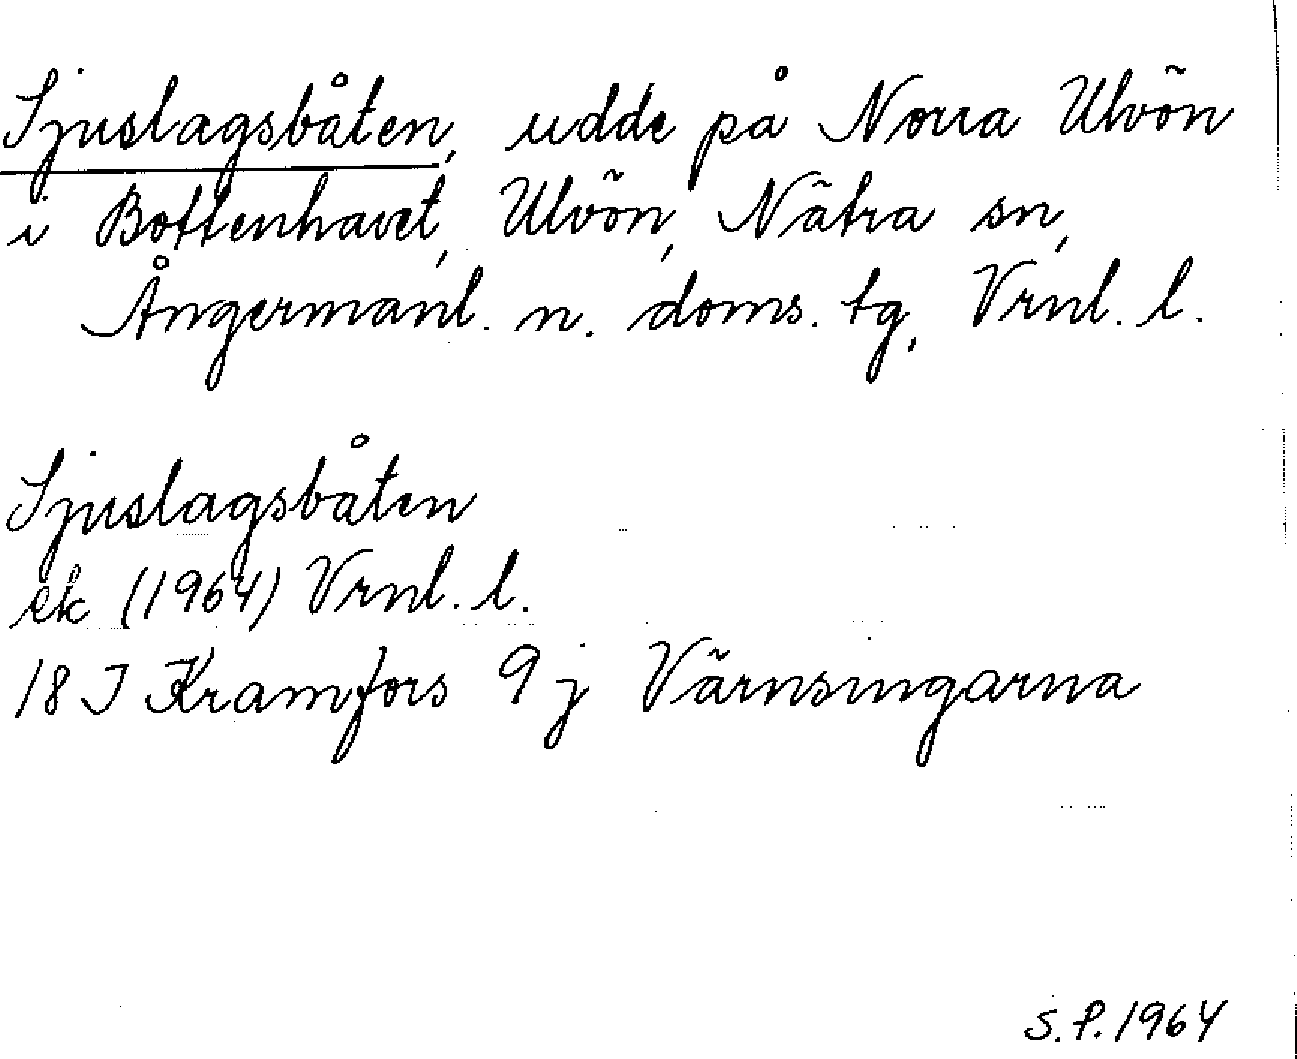 Sjuslagsbåten, udde på Norra Ulvön
i Bottenhavet, Ulvön, Nätra sn,
Ångermanl. n. doms. tg, Vrnl. l.
Sjuslagsbåten
ek (1964) Vrnl. l.
18 I Kramfors 9 j Värnsingarna
S.P. 1964